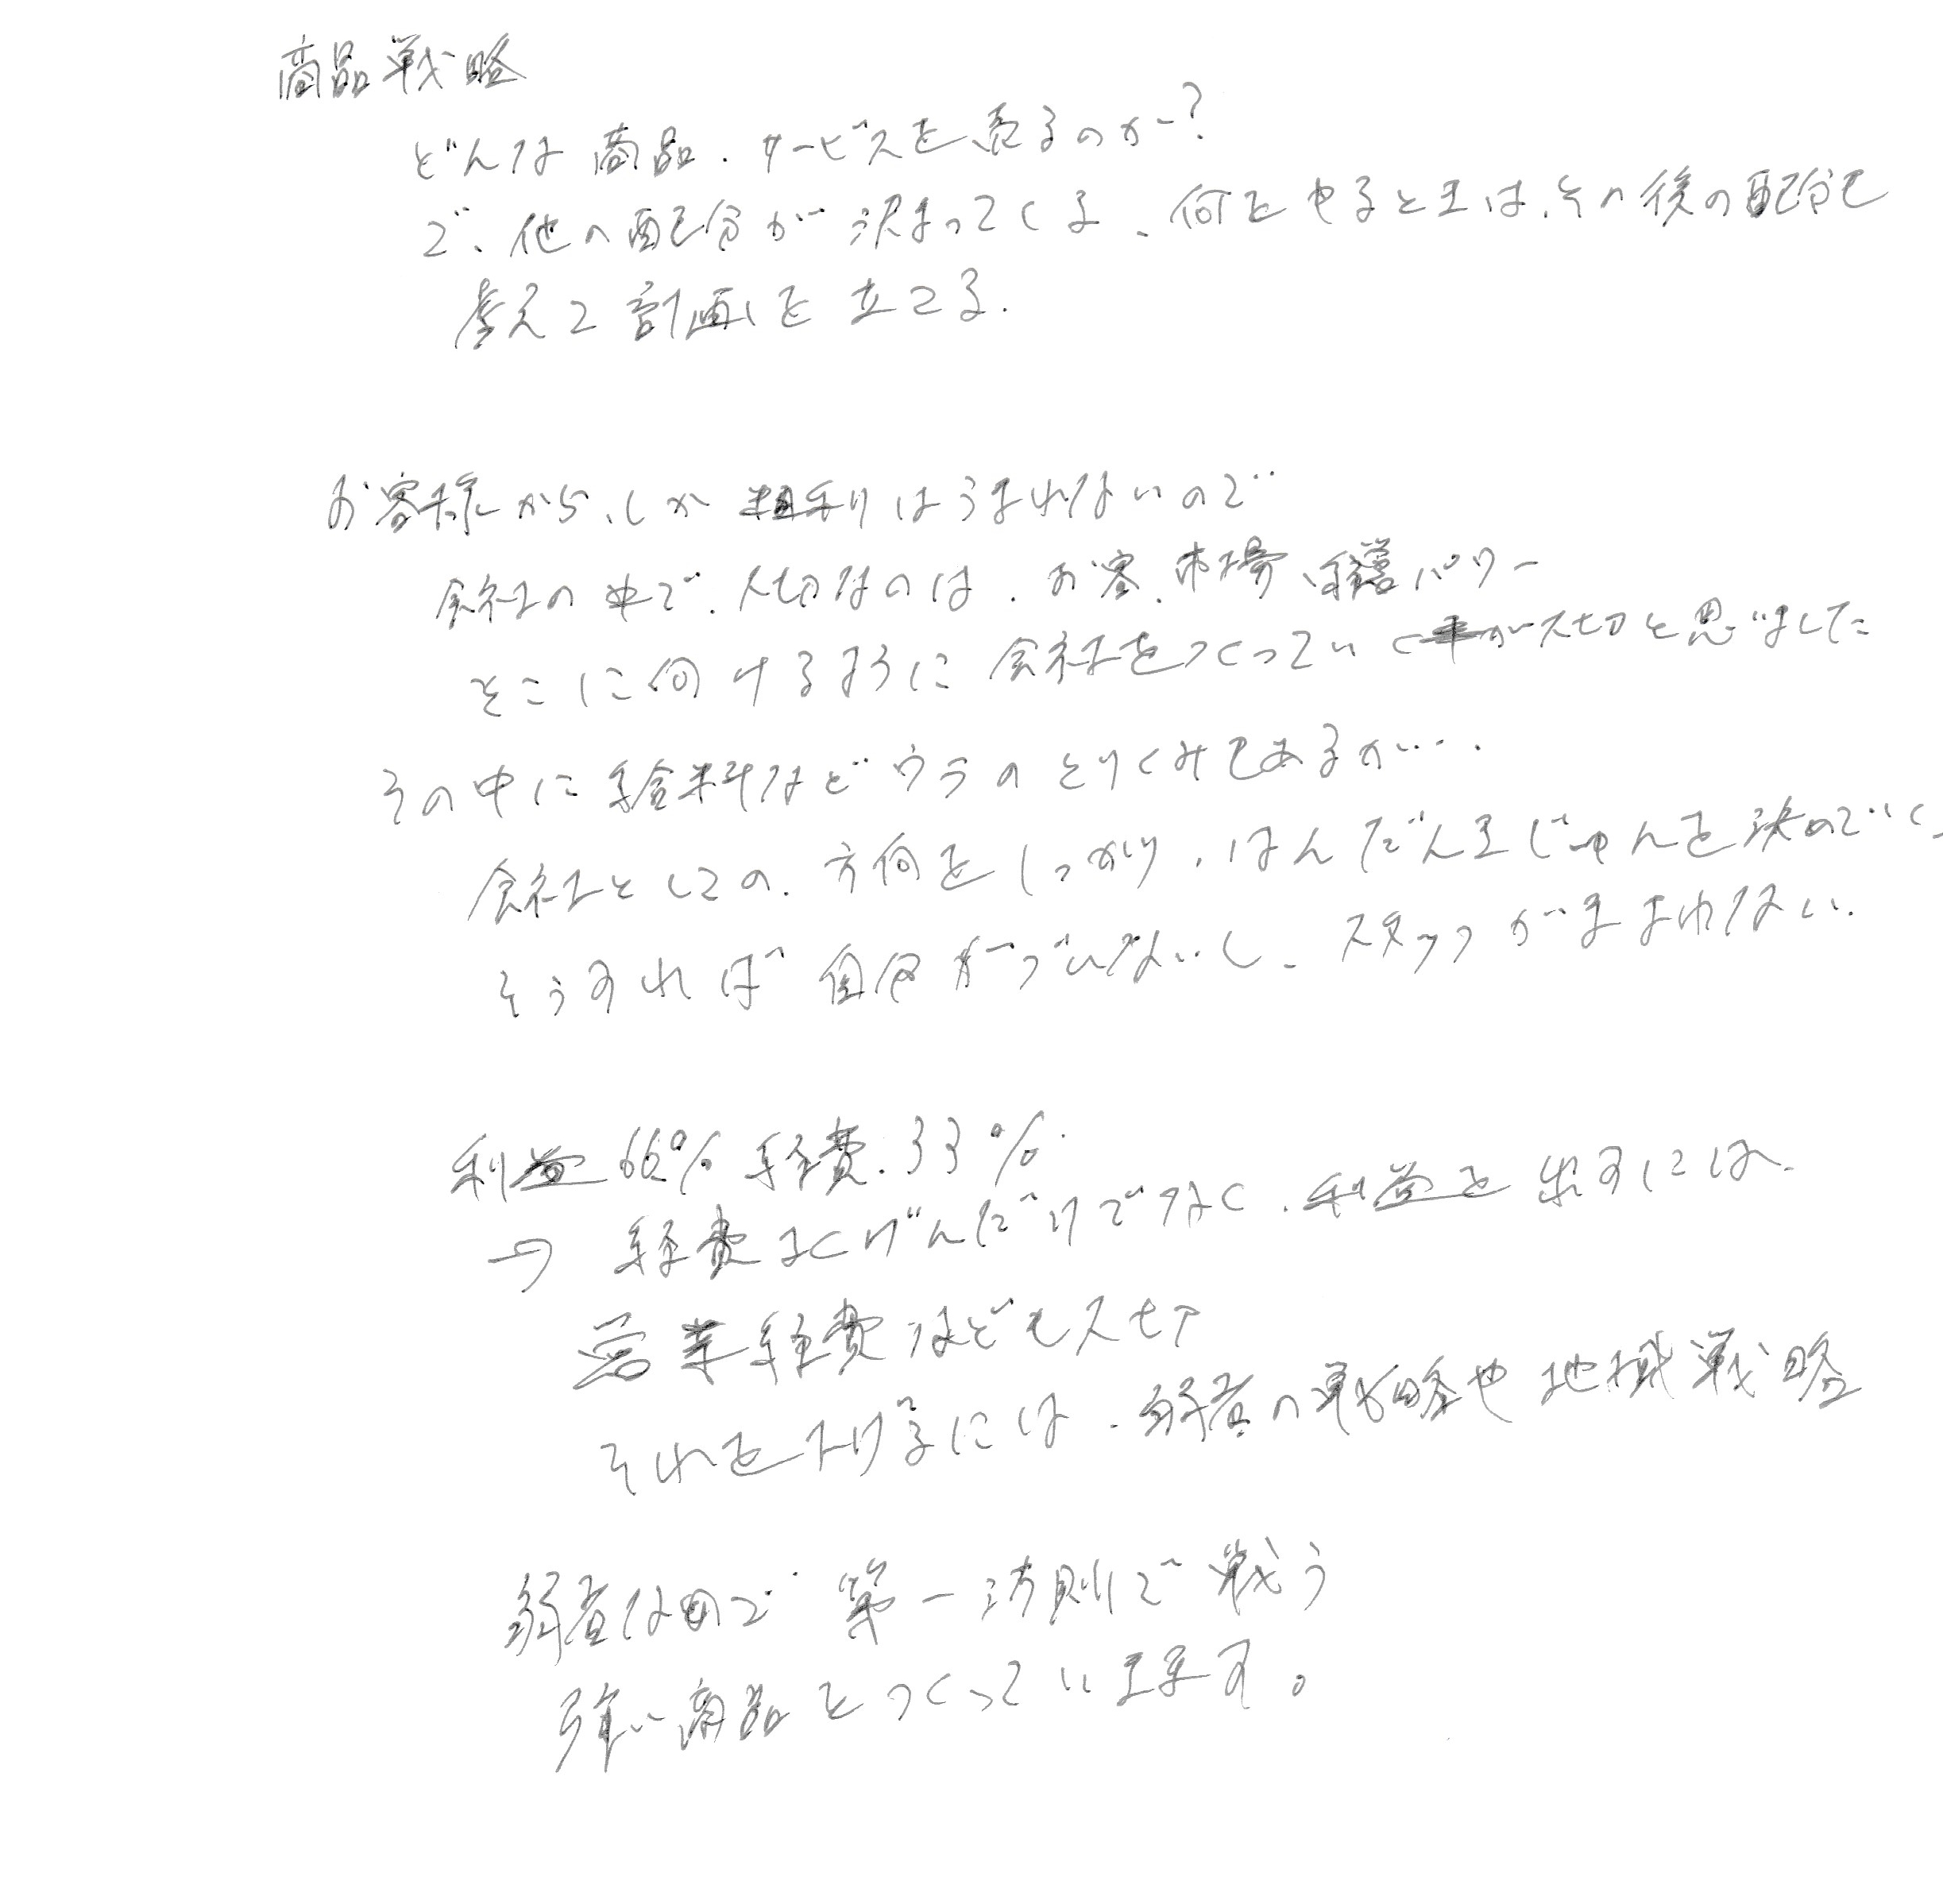 商品戦略
どんな商品、サービスを売るのか?
で、他の配分が決まってくる、何をやるときは、その後の配分も
考えて計画を立てる.
お客様から、しか粗利はうまれないので
会社の中で、大切なのは、お客、市場、経営パワー
そこに向けるように会社をつくっていく事が大切と思いました
その中に給料などウラのとりくみもあるが….
会社としての、方向をしっかり、はんだんきじゅんを決めていく、
そうすれば自分がブレないし、スタッフがまよわない.
利益66% 経費.33%.
→ 経費さくげんだけでなく、利益を出すには、
営業経費なども大切
それを下げるには、弱者の戦略や地域戦略
弱者なので 第一法則で戦う
強い商品をつくっていきます。